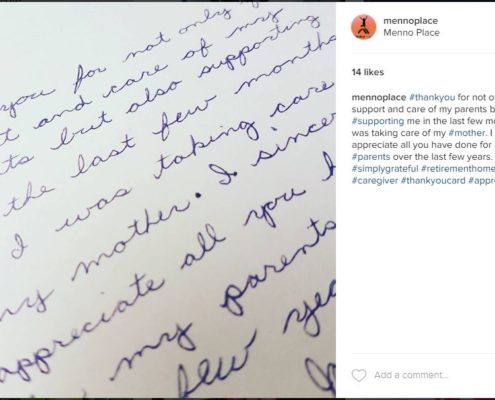 you for not only
t and care of my
ts but also supporting
the last few months
I was taking care
my mother. I sincer
appreciate all you h
my parents
few yea
mennoplace
Menno Place
14 likes
mennoplace #thankyou for not o
support and care of my parents b
#supporting me in the last few mo
was taking care of my #mother. I
appreciate all you have done for
#parents over the last few years.
#simplygrateful #retirementhome
#caregiver #thankyoucard #appre
Add a comment...